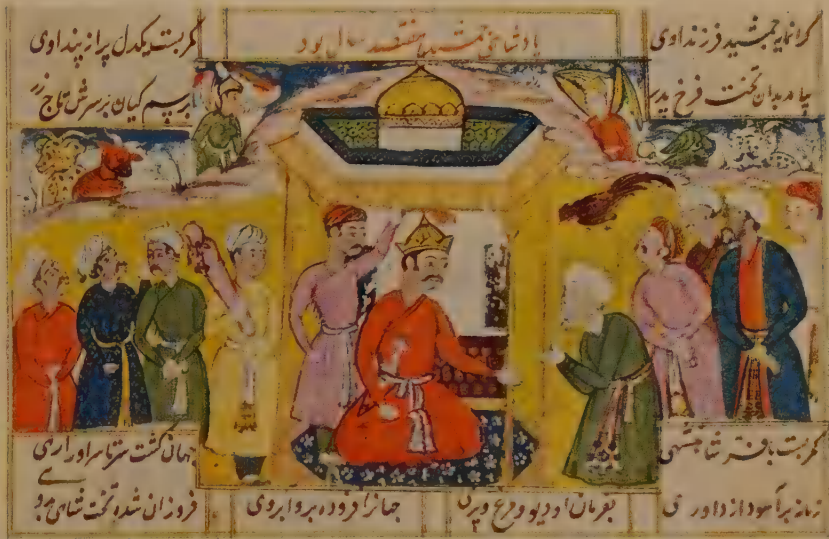 پادشاهی جمشید هفتصد سال بود
گرانمایه جمشید فرزند اوی
کمر بست یکدل پر از پند اوی
بیامد بدان تخت فرخ پدر
برسم کیان بر سرش تاج زر
کمر بست با فر شاهنشهی
جهان گشت سرتاسر او را رهی
زمانه برآسود از داوری
بفرمان او دیو و مرغ و پری
جهانرا فزوده برو ابروی
فروزان شده تخت شاهی بدو